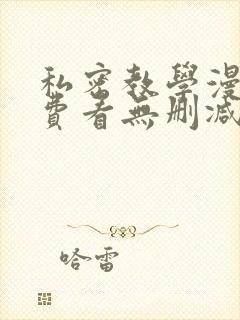 私密教學漫
費看無刪減
哈雷